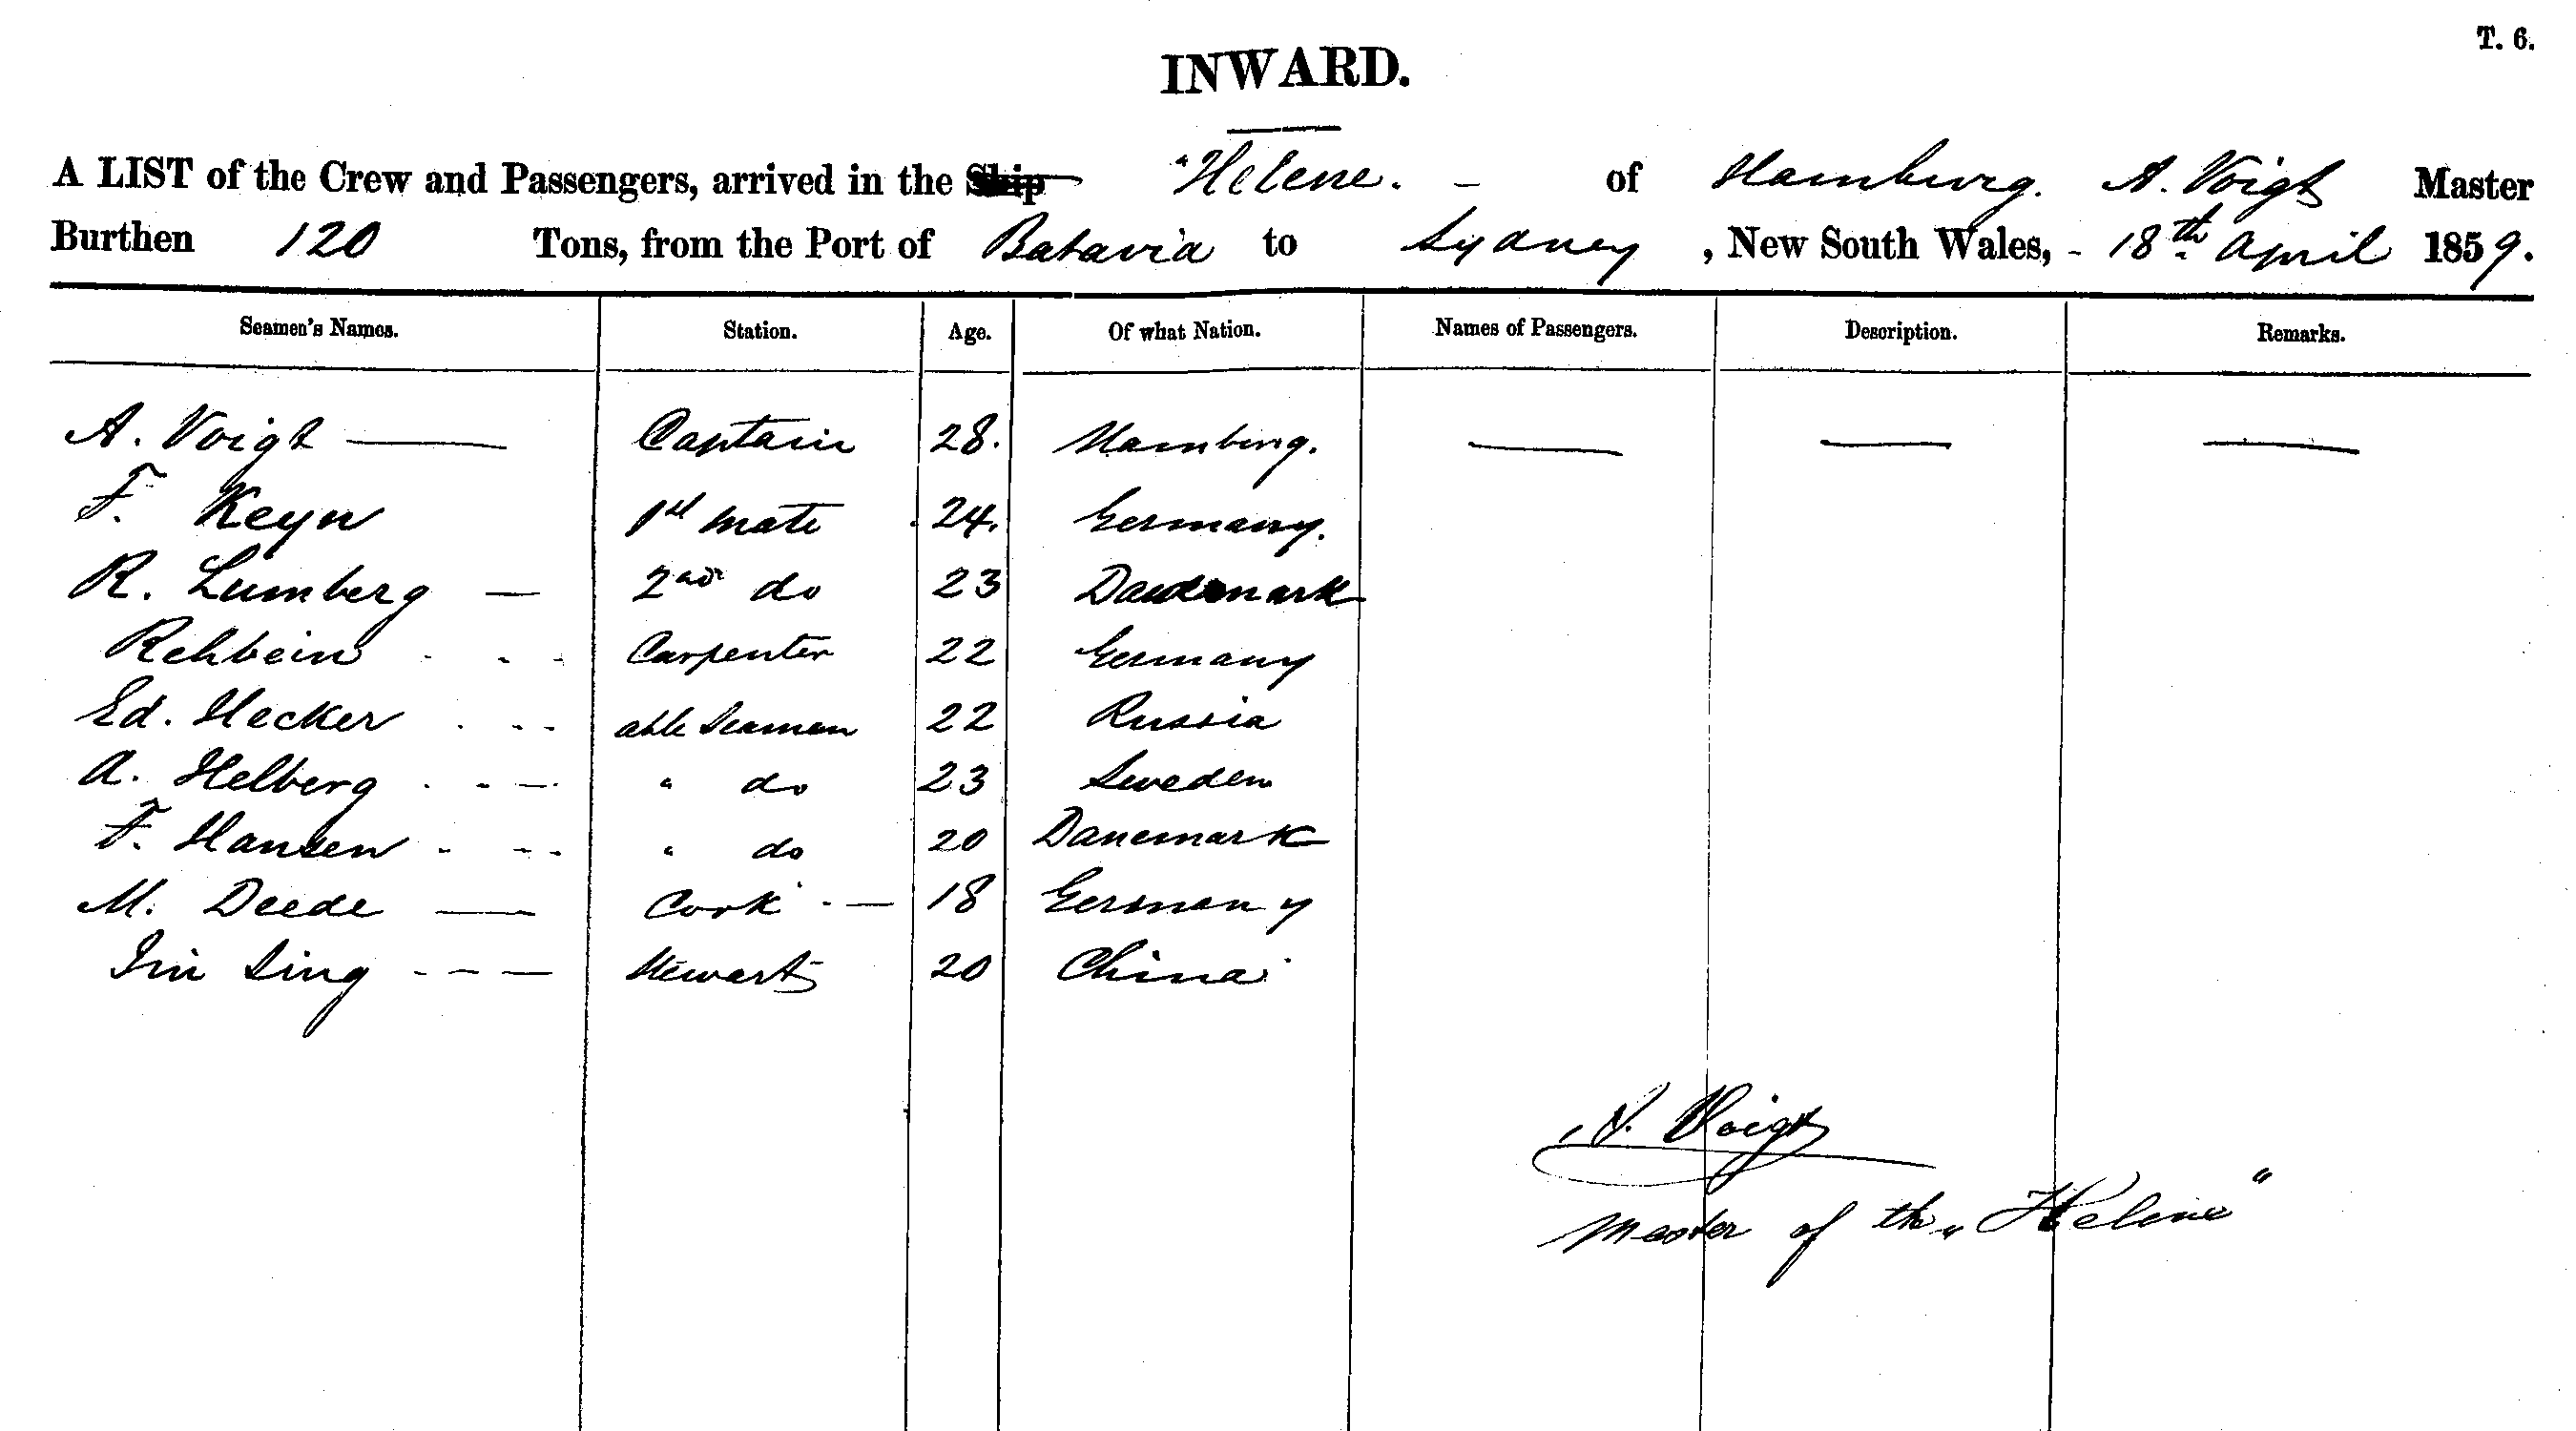 T. 6.
INWARD.
A LIST of the Crew and Passengers, arrived in the Ship "Helene. - of Hamburg. A. Voigt Master
Burthen 120 Tons, from the Port of Batavia to Sydney , New South Wales, - 18th April 1859.
Seamen's Names. Station. Age. Of what Nation. Names of Passengers. Description. Remarks.
A. Voigt Captain 28. Hamburg.
F. Keyn 1st mate 24. Germany.
R. Lumberg 2nd do 23 Danemark
Rehbein Carpenter 22 Germany
Ed. Hecker able Seaman 22 Russia
A. Helberg " do 23 Sweden
F. Hansen " do 20 Danemark
M. Deede Cook 18 Germany
Sing Stewart 20 China
A. Voigt
Master of the "Helene"